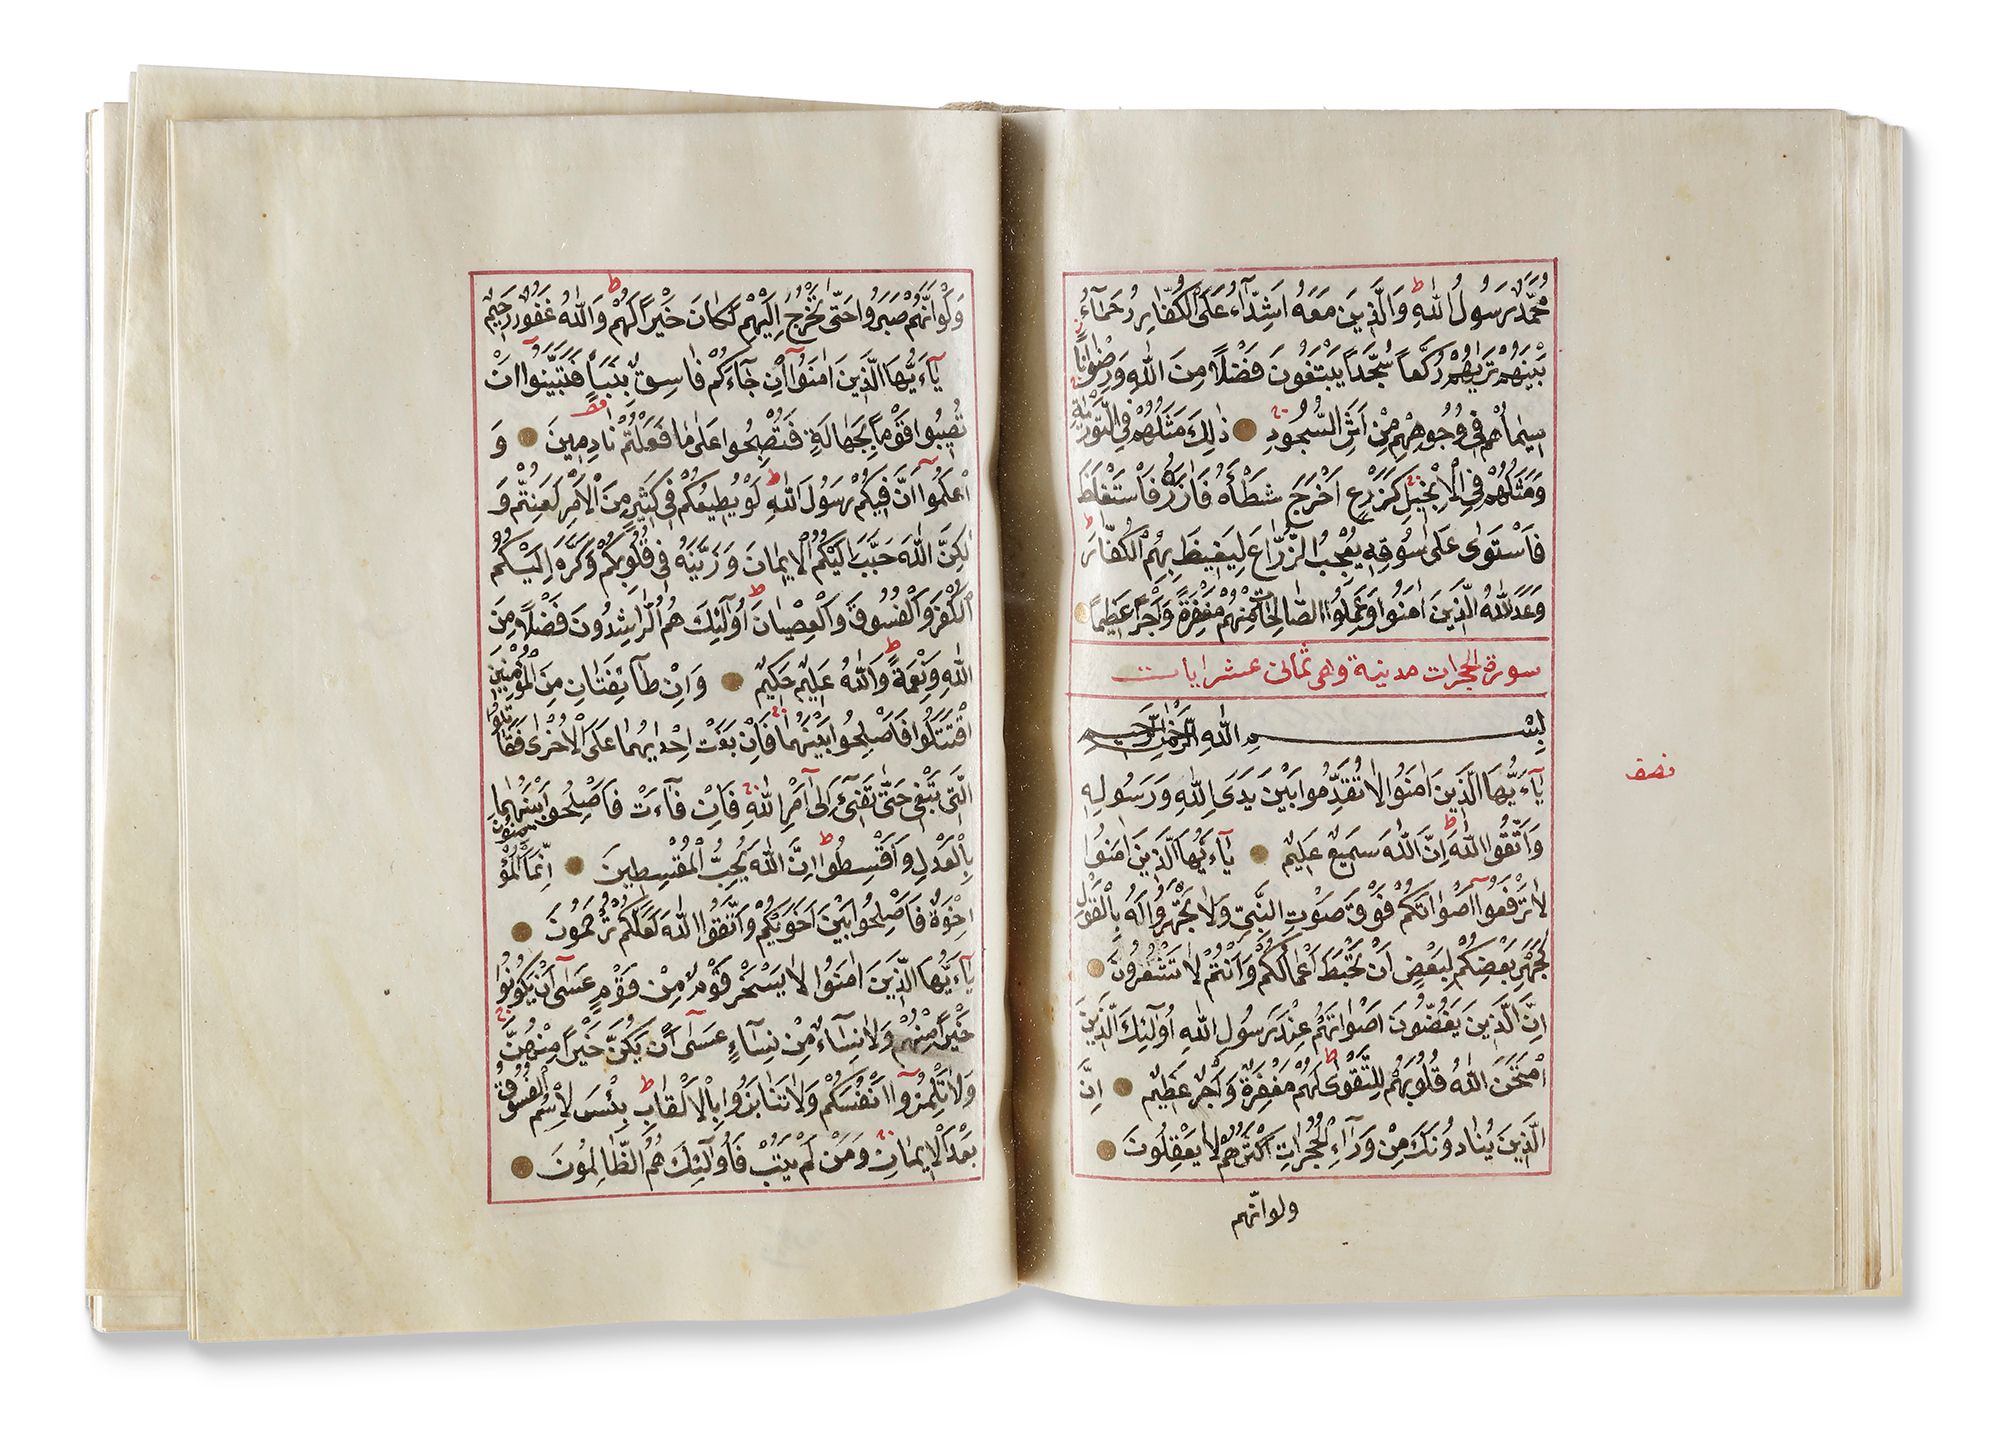 مُحَمَّدٌ رَسُولُ اللّٰهِ وَالَّذِينَ مَعَهُ اَشِدَّاءُ عَلَى الْكُفَّارِ رُحَمَاءُ
بَيْنَهُمْ تَرٰيهُمْ رُكَّعًا سُجَّدًا يَبْتَغُونَ فَضْلًا مِنَ اللّٰهِ وَرِضْوَانًا
سِيمَاهُمْ فِي وُجُوهِهِمْ مِنْ اَثَرِ السُّجُودِ ذٰلِكَ مَثَلُهُمْ فِي التَّوْرٰيةِ
وَمَثَلُهُمْ فِي الْاِنْجِيلِ كَزَرْعٍ اَخْرَجَ شَطْأَهُ فَاٰزَرَهُ فَاسْتَغْلَظَ
فَاسْتَوٰى عَلٰى سُوقِهِ يُعْجِبُ الزُّرَّاعَ لِيَغِيظَ بِهِمُ الْكُفَّارَ
وَعَدَ اللّٰهُ الَّذِينَ اٰمَنُوا وَعَمِلُوا الصَّالِحَاتِ مِنْهُمْ مَغْفِرَةً وَاَجْرًا عَظِيمًا
سورة الحجرات مدنية وهى ثمانى عشر ايات
بِسْمِ اللّٰهِ الرَّحْمٰنِ الرَّحِيمِ
يَاءَيُّهَا الَّذِينَ اٰمَنُوا لَا تُقَدِّمُوا بَيْنَ يَدَيِ اللّٰهِ وَرَسُولِهِ
وَاتَّقُوا اللّٰهَ اِنَّ اللّٰهَ سَمِيعٌ عَلِيمٌ يَاءَيُّهَا الَّذِينَ اٰمَنُوا
لَا تَرْفَعُوا اَصْوَاتَكُمْ فَوْقَ صَوْتِ النَّبِيِّ وَلَا تَجْهَرُوا لَهُ بِالْقَوْلِ
كَجَهْرِ بَعْضِكُمْ لِبَعْضٍ اَنْ تَحْبَطَ اَعْمَالُكُمْ وَاَنْتُمْ لَا تَشْعُرُونَ
اِنَّ الَّذِينَ يَغُضُّونَ اَصْوَاتَهُمْ عِنْدَ رَسُولِ اللّٰهِ اُولٰئِكَ الَّذِينَ
امْتَحَنَ اللّٰهُ قُلُوبَهُمْ لِلتَّقْوٰى لَهُمْ مَغْفِرَةٌ وَاَجْرٌ عَظِيمٌ اِنَّ
الَّذِينَ يُنَادُونَكَ مِنْ وَرَاءِ الْحُجُرَاتِ اَكْثَرُهُمْ لَا يَعْقِلُونَ
ولوانهم
نصف
وَلَوْ اَنَّهُمْ صَبَرُوا حَتّٰى تَخْرُجَ اِلَيْهِمْ لَكَانَ خَيْرًا لَهُمْ وَاللّٰهُ غَفُورٌ رَحِيمٌ
يَاءَيُّهَا الَّذِينَ اٰمَنُوا اِنْ جَاءَكُمْ فَاسِقٌ بِنَبَأٍ فَتَبَيَّنُوا اَنْ
تُصِيبُوا قَوْمًا بِجَهَالَةٍ فَتُصْبِحُوا عَلٰى مَا فَعَلْتُمْ نَادِمِينَ وَ
اعْلَمُوا اَنَّ فِيكُمْ رَسُولَ اللّٰهِ لَوْ يُطِيعُكُمْ فِي كَثِيرٍ مِنَ الْاَمْرِ لَعَنِتُّمْ وَ
لٰكِنَّ اللّٰهَ حَبَّبَ اِلَيْكُمُ الْاِيمَانَ وَزَيَّنَهُ فِي قُلُوبِكُمْ وَكَرَّهَ اِلَيْكُمُ
الْكُفْرَ وَالْفُسُوقَ وَالْعِصْيَانَ اُولٰئِكَ هُمُ الرَّاشِدُونَ فَضْلًا مِنَ
اللّٰهِ وَنِعْمَةً وَاللّٰهُ عَلِيمٌ حَكِيمٌ وَاِنْ طَائِفَتَانِ مِنَ الْمُؤْمِنِينَ
اقْتَتَلُوا فَاَصْلِحُوا بَيْنَهُمَا فَاِنْ بَغَتْ اِحْدٰيهُمَا عَلَى الْاُخْرٰى فَقَاتِلُوا
الَّتِي تَبْغِي حَتّٰى تَفِيءَ اِلٰى اَمْرِ اللّٰهِ فَاِنْ فَاءَتْ فَاَصْلِحُوا بَيْنَهُمَا
بِالْعَدْلِ وَاَقْسِطُوا اِنَّ اللّٰهَ يُحِبُّ الْمُقْسِطِينَ اِنَّمَا الْمُؤْمِنُونَ
اِخْوَةٌ فَاَصْلِحُوا بَيْنَ اَخَوَيْكُمْ وَاتَّقُوا اللّٰهَ لَعَلَّكُمْ تُرْحَمُونَ
يَاءَيُّهَا الَّذِينَ اٰمَنُوا لَا يَسْخَرْ قَوْمٌ مِنْ قَوْمٍ عَسٰى اَنْ يَكُونُوا
خَيْرًا مِنْهُمْ وَلَا نِسَاءٌ مِنْ نِسَاءٍ عَسٰى اَنْ يَكُنَّ خَيْرًا مِنْهُنَّ
وَلَا تَلْمِزُوا اَنْفُسَكُمْ وَلَا تَنَابَزُوا بِالْاَلْقَابِ بِئْسَ الِاسْمُ الْفُسُوقُ
بَعْدَ الْاِيمَانِ وَمَنْ لَمْ يَتُبْ فَاُولٰئِكَ هُمُ الظَّالِمُونَ